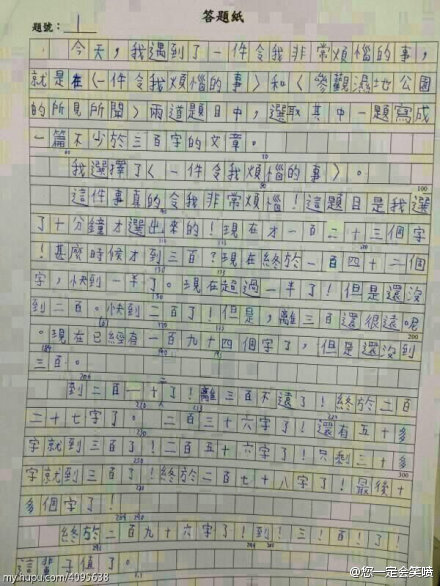 答題紙
題號：1
今天，我遇到了一件令我非常煩惱的事，
就是在〈一件令我煩惱的事〉和〈參觀濕地公園
的所見所聞〉兩道題目中，選取其中一題寫成
一篇不少於三百字的文章。
我選擇了〈一件令我煩惱的事〉。
這件事真的令我非常煩惱！這題目是我選
了十分鐘才選出來的！現在才一百二十三個字
！甚麼時候才到三百？現在終於一百四十二個
字，快到一半了。現在超過一半了！但是還沒
到二百。快到二百了！但是，離三百還很遠。
。現在已經有一百九十四個字了，但是還沒到
三百。
到二百一十了！離三百不遠了！終於二百
二十七字了。二百三十六字了！還有五十多
字就到三百了！二百五十六字了！只剩三十多
字就到三百了！終於二百七十八字了！最後十
多個字了！
終於二百九十六字了！到！三！百！了！
my.hupu.com/4095638
@您一定会笑喷